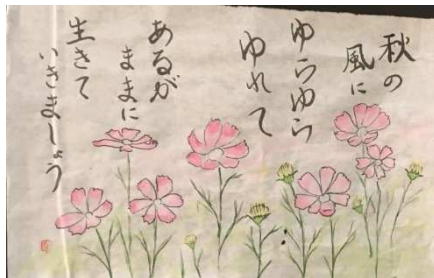 秋の
風に
ゆらゆら
ゆれて
あるが
ままに
生きて
いきましょう